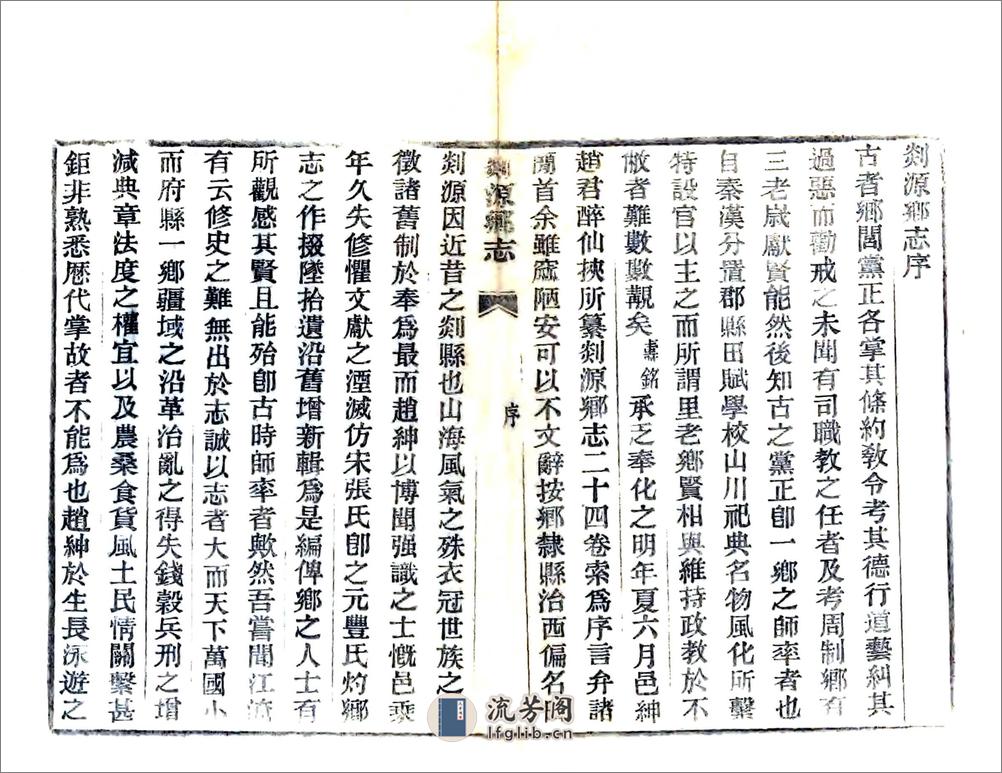 剡源鄉志序
古者鄉閭黨正各掌其條約敎令考其德行道藝糾其
過惡而勸戒之未聞有司職教之任者及考周制鄉有
三老歲獻賢能然後知古之黨正卽一鄉之師率者也
自秦漢分置郡縣田賦學校山川祀典名物風化所繫
特設官以主之而所謂里老鄉賢相與維持政教於不
敝者難數數覯矣 銘承乏奉化之明年夏六月邑紳
趙君醉仙挾所纂剡源鄉志二十四卷索爲序言弁諸
簡首余雖 陋安可以不文辭按鄉隸縣治西偏名曰
剡源鄉志
序
剡源因近昔之剡縣也山海風氣之殊衣冠世族之
徵諸舊制於奉爲最而趙紳以博聞强識之士慨邑乘
年久失修懼文獻之湮滅仿宋張氏卽之元豐氏灼鄉
志之作掇墜拾遺沿舊增新輯爲是編俾鄉之人士有
所觀感其賢且能殆卽古時師率者歟然吾嘗聞江淹
有云修史之難無出於志誠以志者大而天下萬國小
而府縣一鄉疆域之沿革治亂之得失錢穀兵刑之增
減典章法度之權宜以及農桑食貨風土民情關繫甚
鉅非熟悉歷代掌故者不能爲也趙紳於生長泳遊之
流芳阁
lfglib.cn